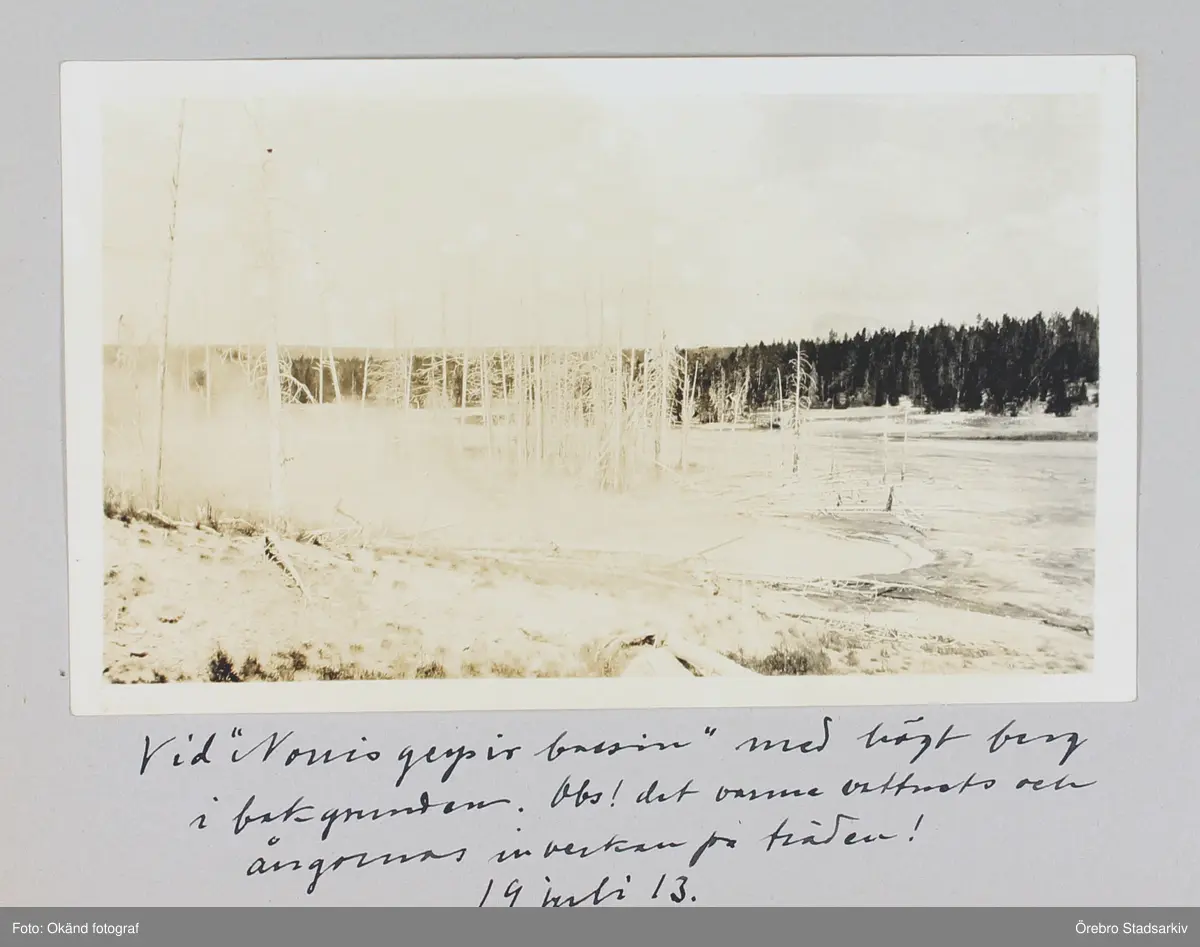 Vid "Norris geysir bassin" med högt berg
i bakgrunden. Obs! det varma vattnets och
ångornas inverkan på träden!
19 juli 13.
Foto: Okänd fotograf
Örebro Stadsarkiv